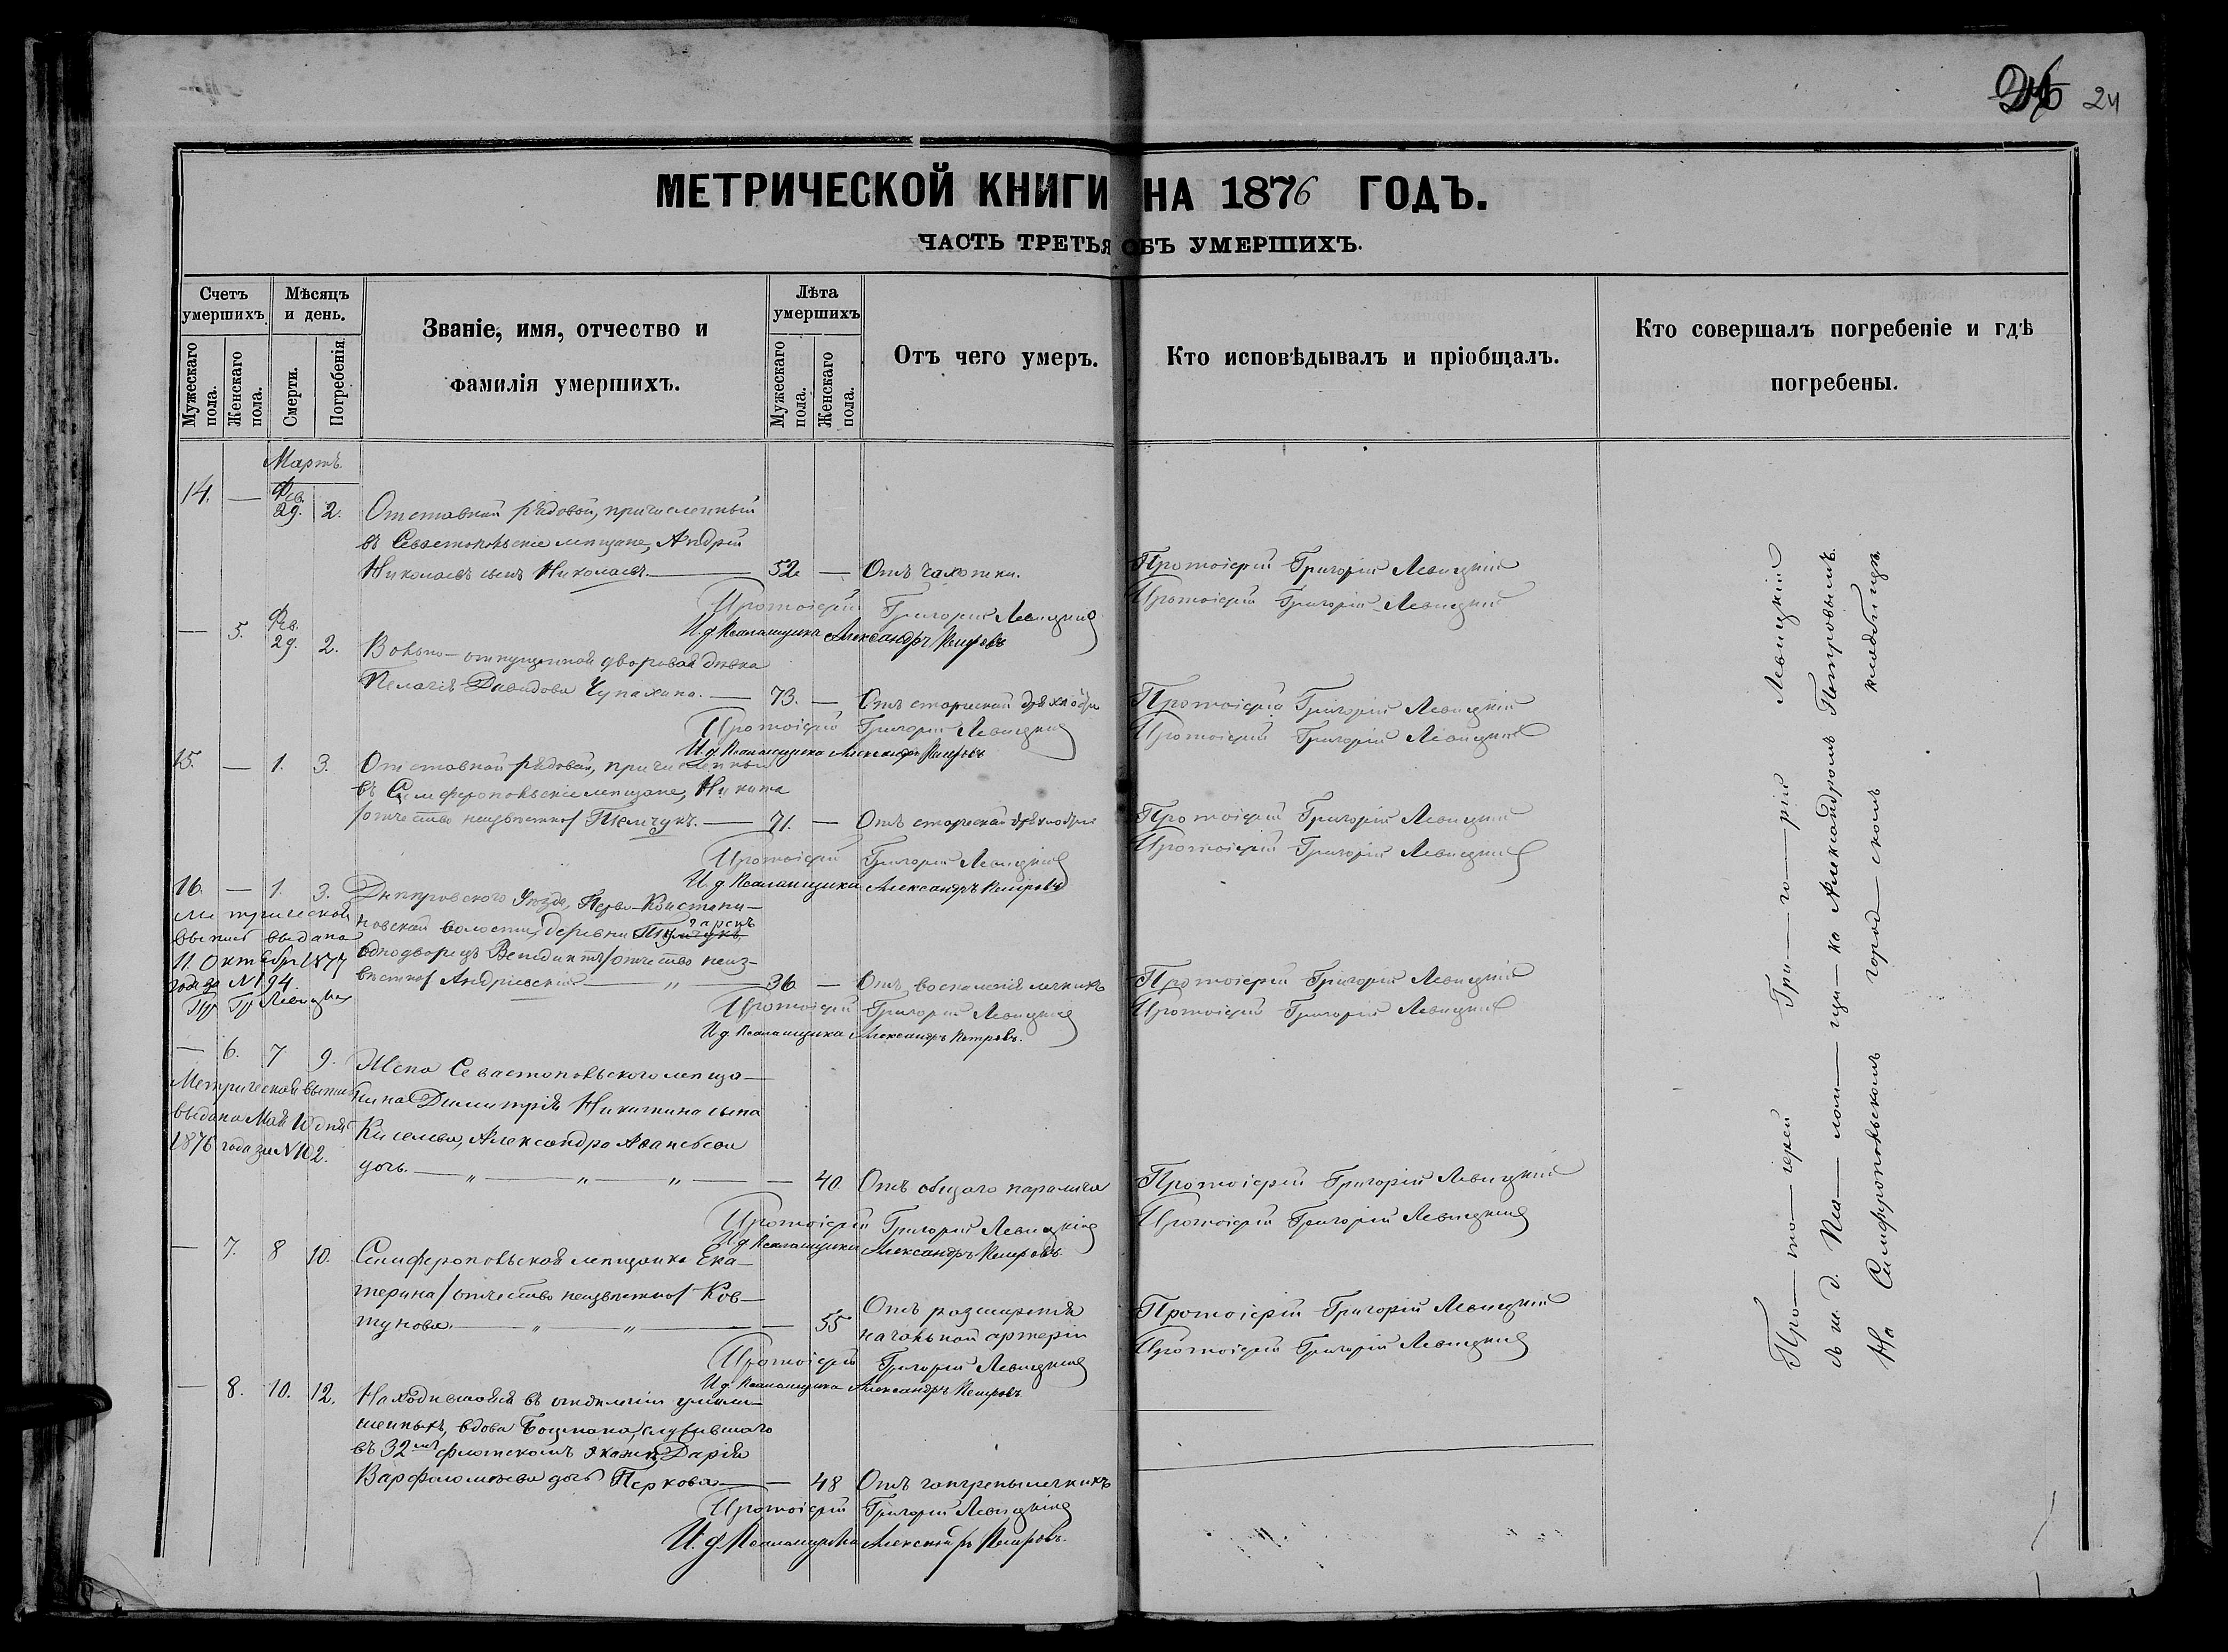 24
МЕТРИЧЕСКОЙ КНИГИ НА 1876 ГОДЪ.
ЧАСТЬ ТРЕТЬЯ ОБЪ УМЕРШИХЪ.
Счетъ умершихъ.
Мужескаго пола.
Женскаго пола.
Мѣсяцъ и день.
Смерти.
Погребенія.
Званіе, имя, отчество и
фамилія умершихъ.
Лѣта умершихъ
Мужескаго пола.
Женскаго пола.
Отъ чего умеръ.
Кто исповѣдывалъ и пріобщалъ.
Кто совершалъ погребеніе и гдѣ
погребены.
Мартъ.
14. — Фев. 29. 2. Отставный рядовой, причисленный
въ Севастопольскіе мѣщане, Андрей
Николаевъ сынъ Николаевъ. — 52 — Отъ чахотки. Протоіерей Григорій Левицкій
Протоіерей Григорій Левицкій
Протоіерей Григорій Левицкій
И. д. Псаломщика Александръ Петровъ
— 5. Фев. 29. 2. Вольно-отпущенная дворовая дѣвка
Пелагія Давидова Чупахина. — 73. — Отъ старческой дряхлости Протоіерей Григорій Левицкій
Протоіерей Григорій Левицкій
Протоіерей Григорій Левицкій
И. д. Псаломщика Александръ Петровъ
15. — 1. 3. Отставной рядовой, причисленный
въ Симферопольскіе мѣщане, Никита
/отчество неизвѣстно/ — 71. — Отъ старческой дряхлости Протоіерей Григорій Левицкій
Протоіерей Григорій Левицкій
Протоіерей Григорій Левицкій
И. д. Псаломщика Александръ Петровъ
16. — 1. 3. Днѣпровского Уѣзда, Перво-Константи-
новской волости, деревни
однодворецъ Венедиктъ /отчество неиз-
вѣстно/ Андріевскій — „ — 36 — Отъ воспаленія легкихъ Протоіерей Григорій Левицкій
Метрическая
выпись выдана
11 Октября 1877
года за N 194.
Пр Гр Левицкій
Протоіерей Григорій Левицкій
Протоіерей Григорій Левицкій
И. д. Псаломщика Александръ Петровъ.
— 6. 7 9. Жена Севастопольского мѣща-
нина Димитрія Никитина сына
Киселева, Александра Аванасьева
дочь. — „ — „ — „ — — 40 Отъ общаго паралича Протоіерей Григорій Левицкій
Метрическая выпись
выдана Мая 10 дня
1876 года за N 102.
Протоіерей Григорій Левицкій
Протоіерей Григорій Левицкій
И. д. Псаломщика Александръ Петровъ.
— 7. 8 10. Симферопольская мѣщанка Ека-
терина /отчество неизвѣстно/ Ков-
тунова. — „ — „ — — 55 Отъ расширенія
начальной артеріи Протоіерей Григорій Левицкій
Протоіерей Григорій Левицкій
Протоіерей Григорій Левицкій
И. д. Псаломщика Александръ Петровъ
— 8. 10. 12. Находившаяся въ отдѣленіи умали-
шенныхъ, вдова Боцмана, служившаго
въ 32мъ флотскомъ экипажѣ, Дарія
Варфоломѣева дочь Перкова — — 48 Отъ гангрены легкихъ
Протоіерей Григорій Левицкій
И. д. Псаломщика Александръ Петровъ.
Про—то—іерей Гри—го—рій Левицкій
съ и. д. Пса—лом—щи—ка Александромъ Петровымъ.
На Симферопольскомъ город—скомъ кладбищѣ.